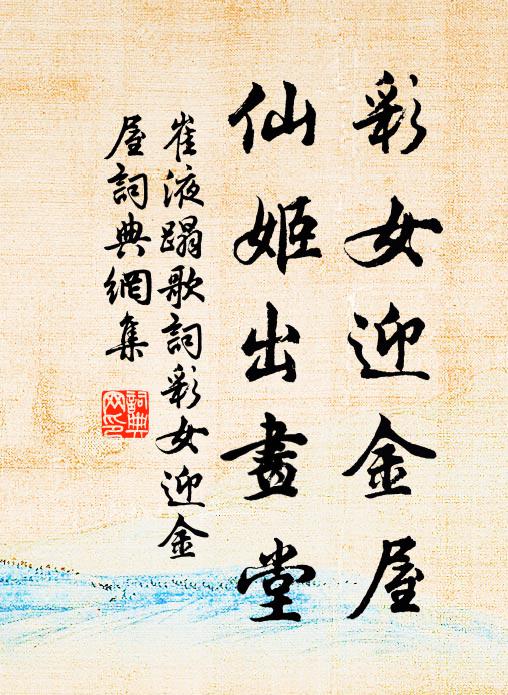 彩女迎金屋
仙姬出畫堂
崔液蹋歌詞彩女迎金
屋詞典網集
詞典
网印